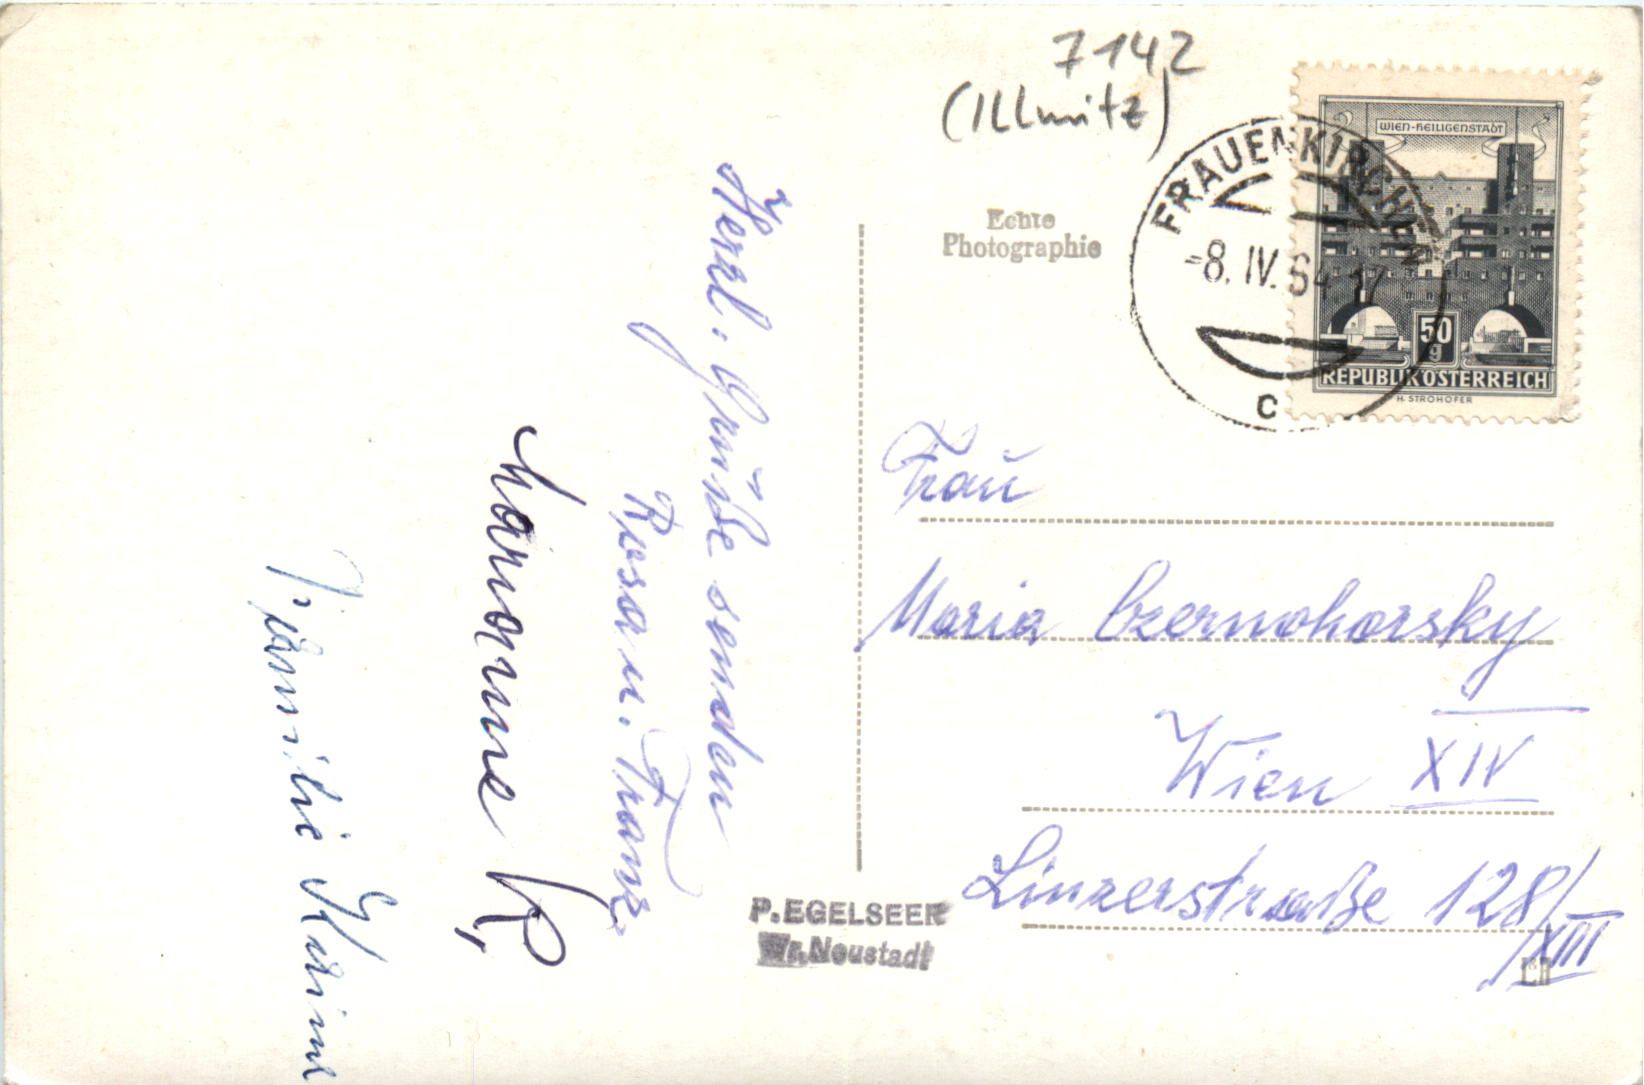 7142
(Illmitz)
WIEN-HEILIGENSTADT
50
g
REPUBLIK ÖSTERREICH
H. STROHOFER
FRAUENKIRCHEN
-8. IV. 64 17
c
Echte
Photographie
Herzl. Grüße senden
Rosa u. Franz
Marianne K.
Familie
Frau
Maria Czernohorsky
Wien XIV
Linzerstraße 128/
XIII
P. EGELSEER
Wr. Neustadt